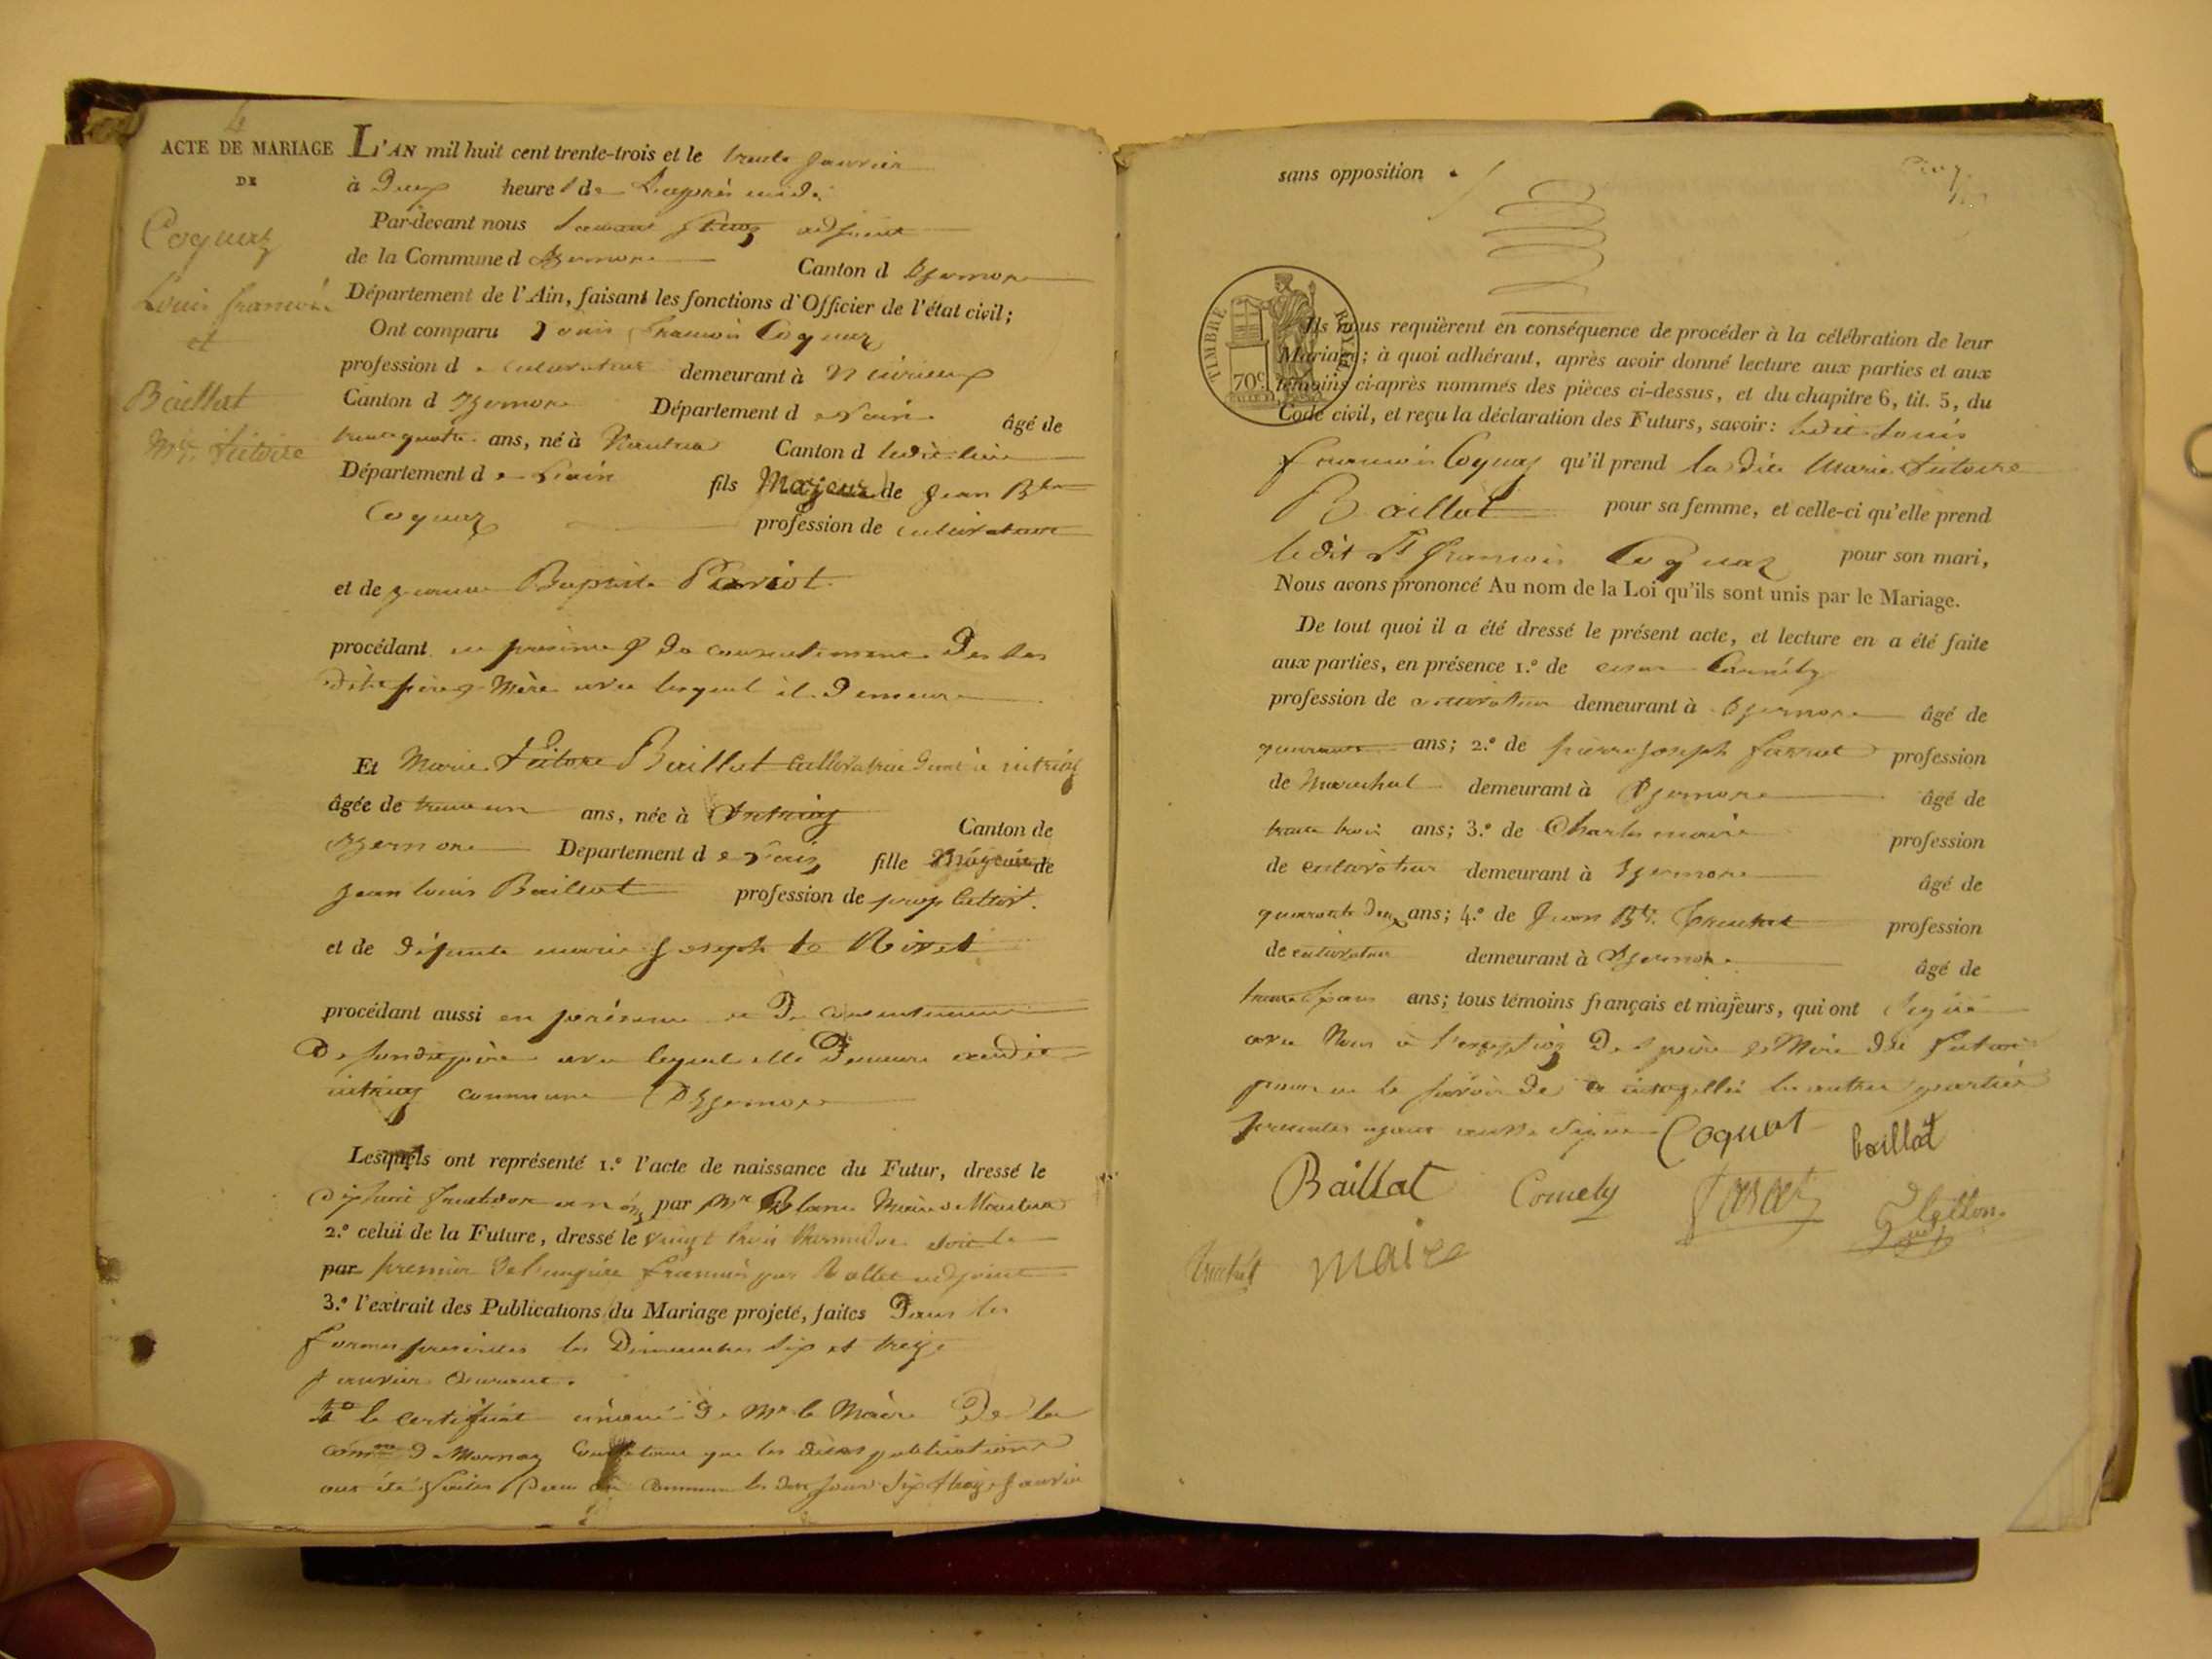 4
ACTE DE MARIAGE
DE
Coquaz
Louis françois
et
Baillat
Mie Victoire
L'AN mil huit cent trente-trois et le trente janvier
à Deux heures de L'après midi
Par-devant nous adjoint
de la Commune d'Izernore Canton d'Izernore
Département de l'Ain, faisant les fonctions d'Officier de l'état civil;
Ont comparu Louis françois Coquaz
profession de cultivateur demeurant à
Canton d'Izernore Département de l'ain âgé de
trente quatre ans, né à Canton dudit lieu
Département de l'ain fils Majeur de Jean Bte
Coquaz profession de cultivateur
et de jeanne Baptiste Pariot
procédant en présence & du consentement des
dits père & Mère avec lesquel il Demeure
Et Marie Victoire Baillat cultivatrice Demt à intriaz
âgée de trente un ans, née à Intriaz Canton de
Izernore Departement de l'ain fille Majeure de
Jean louis Baillat profession de prop cultivt.
et de défunte marie joseph
procédant aussi en présence et Du consentement
De sondit père avec lequel elle Demeure audit
intriaz commune D'Izernore
Lesquels ont représenté 1.º l'acte de naissance du Futur, dressé le
par Mr Maire
2.º celui de la Future, dressé le vingt trois thermidor
par premier De l'empire français par adjoint
3.º l'extrait des Publications du Mariage projeté, faites Dans les
formes prescrites les Dimanches six et treize
janvier courant.
4º le certificat émané De Mr le Maire De la
comne De Mornay constatant que les dites publications
ont été faites Dans sa commune les dits jours six & treize janvier
sans opposition .
TIMBRE ROYAL
70c
Ils nous requièrent en conséquence de procéder à la célébration de leur
Mariage; à quoi adhérant, après avoir donné lecture aux parties et aux
témoins ci-après nommés des pièces ci-dessus, et du chapitre 6, tit. 5, du
Code civil, et reçu la déclaration des Futurs, savoir: ledit Louis
françois Coquaz qu'il prend la dite Marie Victoire
Baillat pour sa femme, et celle-ci qu'elle prend
ledit Ls françois Coquaz pour son mari,
Nous avons prononcé Au nom de la Loi qu'ils sont unis par le Mariage.
De tout quoi il a été dressé le présent acte, et lecture en a été faite
aux parties, en présence 1.º de Cornély
profession de cultivateur demeurant à Izernore âgé de
quarante ans; 2.º de pierre joseph profession
de Marechal demeurant à Izernore âgé de
trente trois ans; 3.º de Charles maire profession
de cultivateur demeurant à Izernore âgé de
quarante deux ans; 4.º de Jean Bte Truchet profession
de cultivateur demeurant à Izernore âgé de
ans; tous témoins français et majeurs, qui ont signé
avec Nous à l'exception Des père & Mère du futur
pour ne le savoir De ce interpellés les autres parties
présentes ayant aussi signé Coquat baillat
Baillat Comely
truchet maire